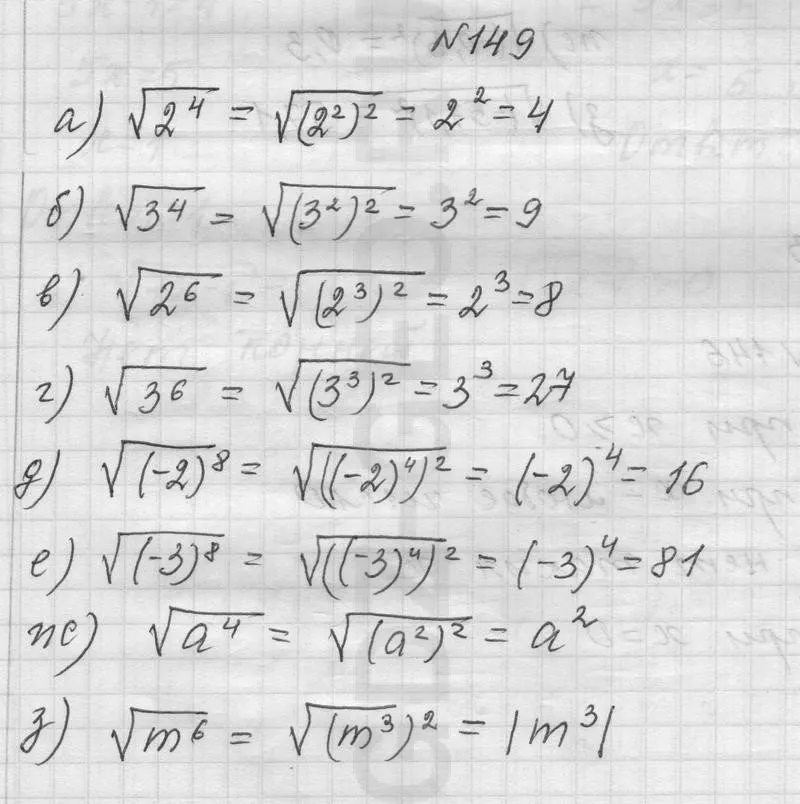 N149
а) √2⁴ = √(2²)² = 2² = 4
б) √3⁴ = √(3²)² = 3² = 9
в) √2⁶ = √(2³)² = 2³ = 8
г) √3⁶ = √(3³)² = 3³ = 27
д) √(-2)⁸ = √((-2)⁴)² = (-2)⁴ = 16
е) √(-3)⁸ = √((-3)⁴)² = (-3)⁴ = 81
ж) √a⁴ = √(a²)² = a²
з) √m⁶ = √(m³)² = |m³|